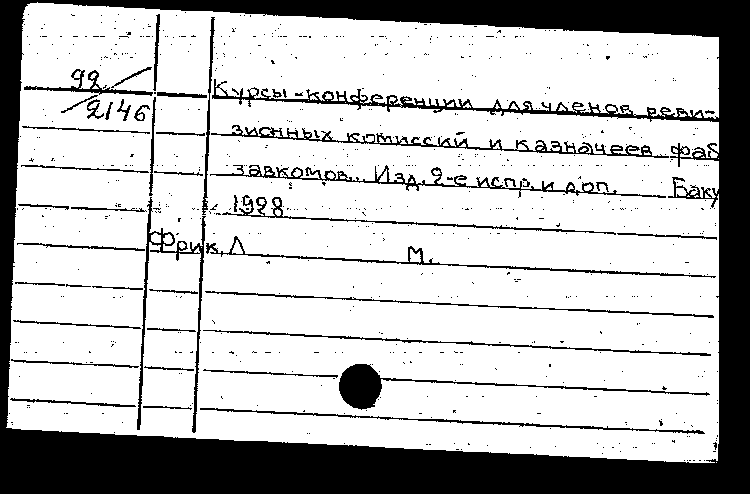 92/2146
Курсы-конференции для членов реви-
зионных комиссий и казначеев фаб
завкомов. Изд. 2-е испр. и доп. Баку
1928
Фрик, Л м.